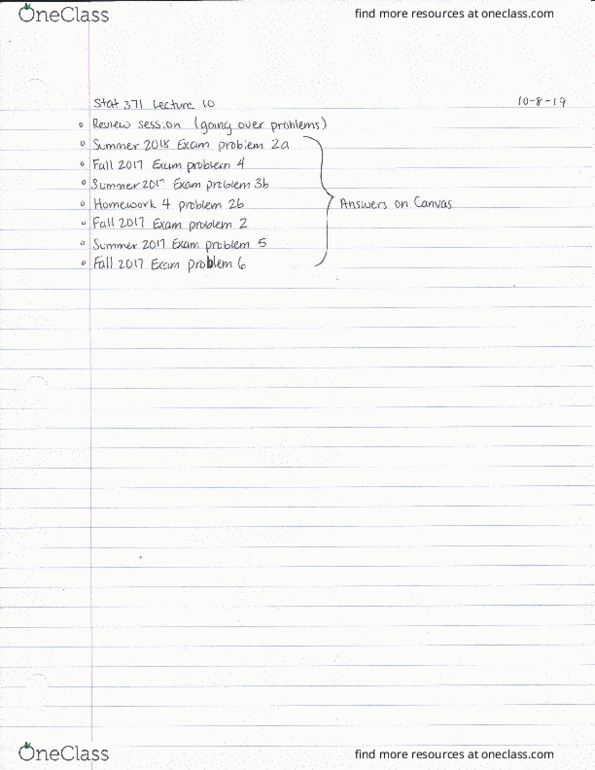 OneClass
find more resources at oneclass.com
Stat 371 Lecture 10
10-8-19
Review session (going over problems)
Summer 2018 Exam problem 2a
Fall 2017 Exam problem 4
Summer 2017 Exam problem 3b
Homework 4 problem 2b
Answers on Canvas
Fall 2017 Exam problem 2
Summer 2017 Exam problem 5
Fall 2017 Exam problem 6
OneClass
find more resources at oneclass.com